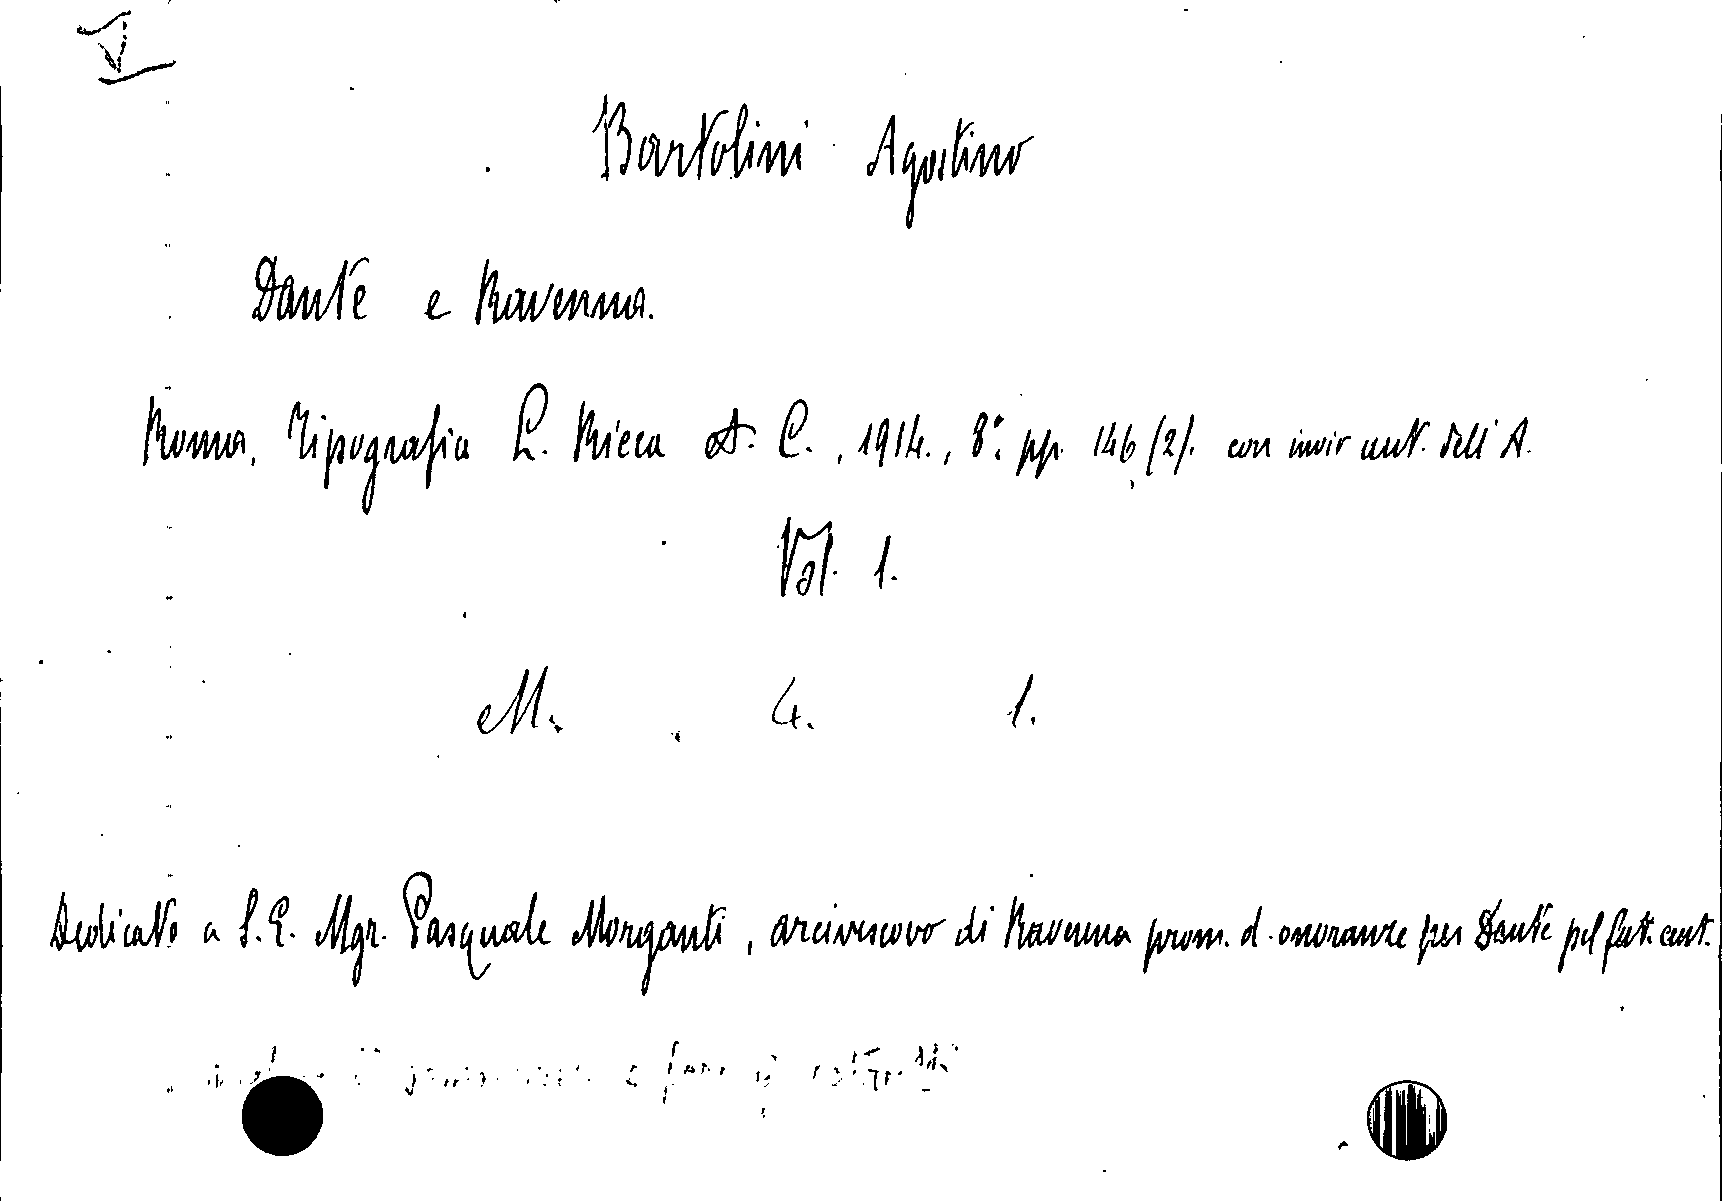 V
Bartolini Agostino
Dante e Ravenna.
Roma, Tipografia L. Ricca et C., 1914., 8°. pp. 146 (2). con invio aut. dell'A.
Vol. 1.
M. 4. 1.
Dedicato a S. E. Mgr. Pasquale Morganti, arcivescovo di Ravenna prom. d. onoranze per Dante pel cent.